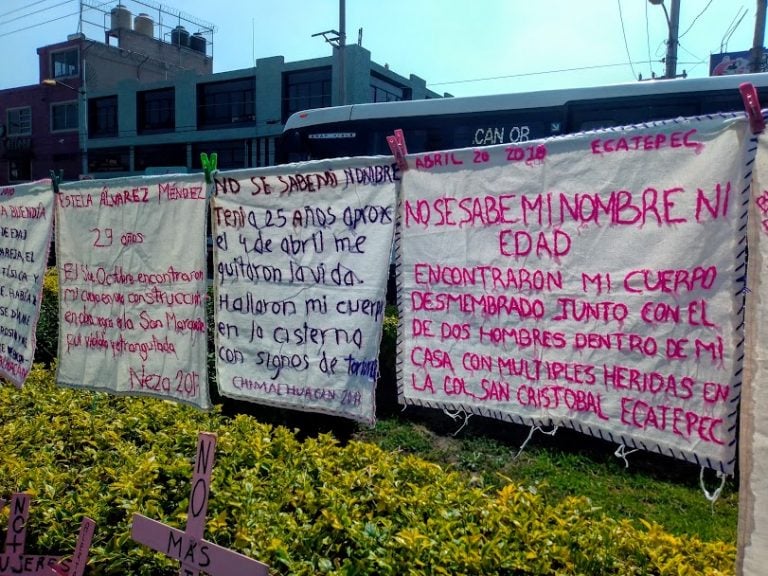 A BUENDÍA
DE EDAD
Y
ESTELA ÁLVAREZ MÉNDEZ
29 años
El 5 de Octubre encontraron
mi cuerpo en una construcción
en obra negra
fui violada y estrangulada
Neza
NO SE SABE MI NOMBRE
Tenía 25 años aprox
el 4 de abril me
quitaron la vida.
Hallaron mi cuerpo
en la cisterna
con signos de
CHIMALHUACÁN
ABRIL 20 2018 ECATEPEC
NO SE SABE MI NOMBRE NI
EDAD
ENCONTRARON MI CUERPO
DESMEMBRADO JUNTO CON EL
DE DOS HOMBRES DENTRO DE MI
CASA CON MULTIPLES HERIDAS EN
LA COL. SAN CRISTOBAL ECATEPEC
CAN OR
NO
MAS
NO
+
MUJERES